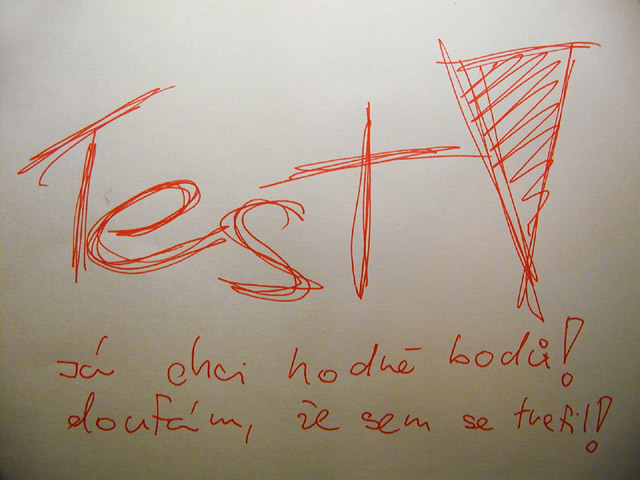 Test!
Já chci hodně bodů!
doufám, že sem se trefil!